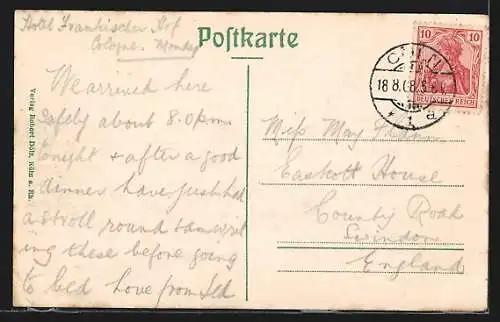 Hotel Fränkischer Hof
Cologne. Monday
Postkarte
We arrived here
safely about 8.0 p.m.
tonight & after a good
dinner have just had
a stroll round & am
ing these before going
to bed love from
Miss May
Eastcott House
County Road
Swindon
England
CÖLN
18.8.08
1 a
10 10
DEUTSCHES REICH
Verlag Robert Döll, Köln a. Rh.